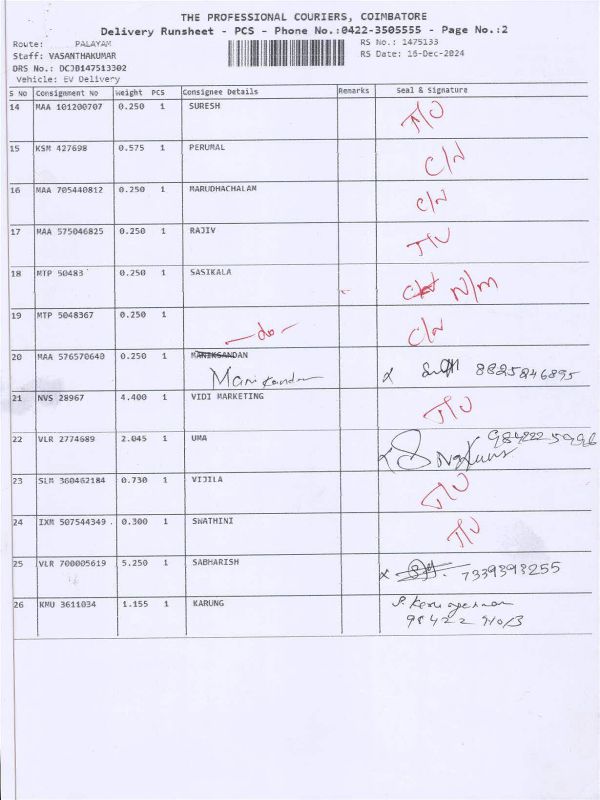 THE PROFESSIONAL COURIERS, COIMBATORE
Delivery Runsheet - PCS - Phone No.:0422-3505555 - Page No.:2
Route: PALAYAM RS No.: 1475133
Staff: VASANTHAKUMAR RS Date: 16-Dec-2024
DRS No.: DCJB147513302
Vehicle: EV Delivery
S No Consignment No Weight PCS Consignee Details Remarks Seal & Signature
14 MAA 101200707 0.250 1 SURESH
15 KSM 427698 0.575 1 PERUMAL C/N
16 MAA 705440812 0.250 1 MARUDHACHALAM C/N
17 MAA 575046825 0.250 1 RAJIV
18 MTP 50483 0.250 1 SASIKALA N/M
19 MTP 5048367 0.250 1 -do- C/N
20 MAA 576570640 0.250 1 MANIKSANDAN 8825846895
Manikandan
21 NVS 28967 4.400 1 VIDI MARKETING
22 VLR 2774689 2.045 1 UMA
23 SLM 360462184 0.730 1 VIJILA
24 IXM 507544349 0.300 1 SWATHINI
25 VLR 700005619 5.250 1 SABHARISH 7339393255
26 KMU 3611034 1.155 1 KARUNG